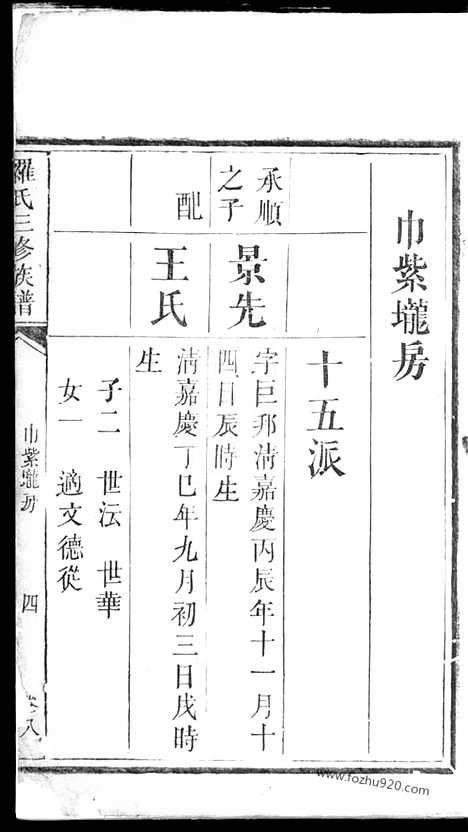 巾紫壠房
十五派
承順之子
景先
字巨邦清嘉慶丙辰年十一月十
四日辰時生
配
王氏
清嘉慶丁巳年九月初三日戌時
生
子二 世沄 世華
女一 適文德從
羅氏三修族譜
巾紫壠房
四
卷八
www.fozhu920.com